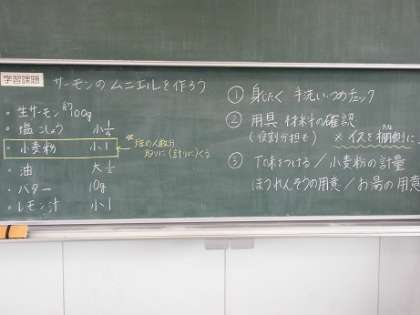 学習課題
サーモンのムニエルを作ろう
・生サーモン 約100g
・塩こしょう 小1/8
・小麦粉 小1
・油 大1/2
・バター 10g
・レモン汁 小1
※班の人数分
取りに(計りに)くる
① 身じたく 手洗い つめチェック
② 用具 材料の確認
(役割分担も) ※イスを棚側に
③ 下味をつける/小麦粉の計量
ほうれんそうの用意/お湯の用意